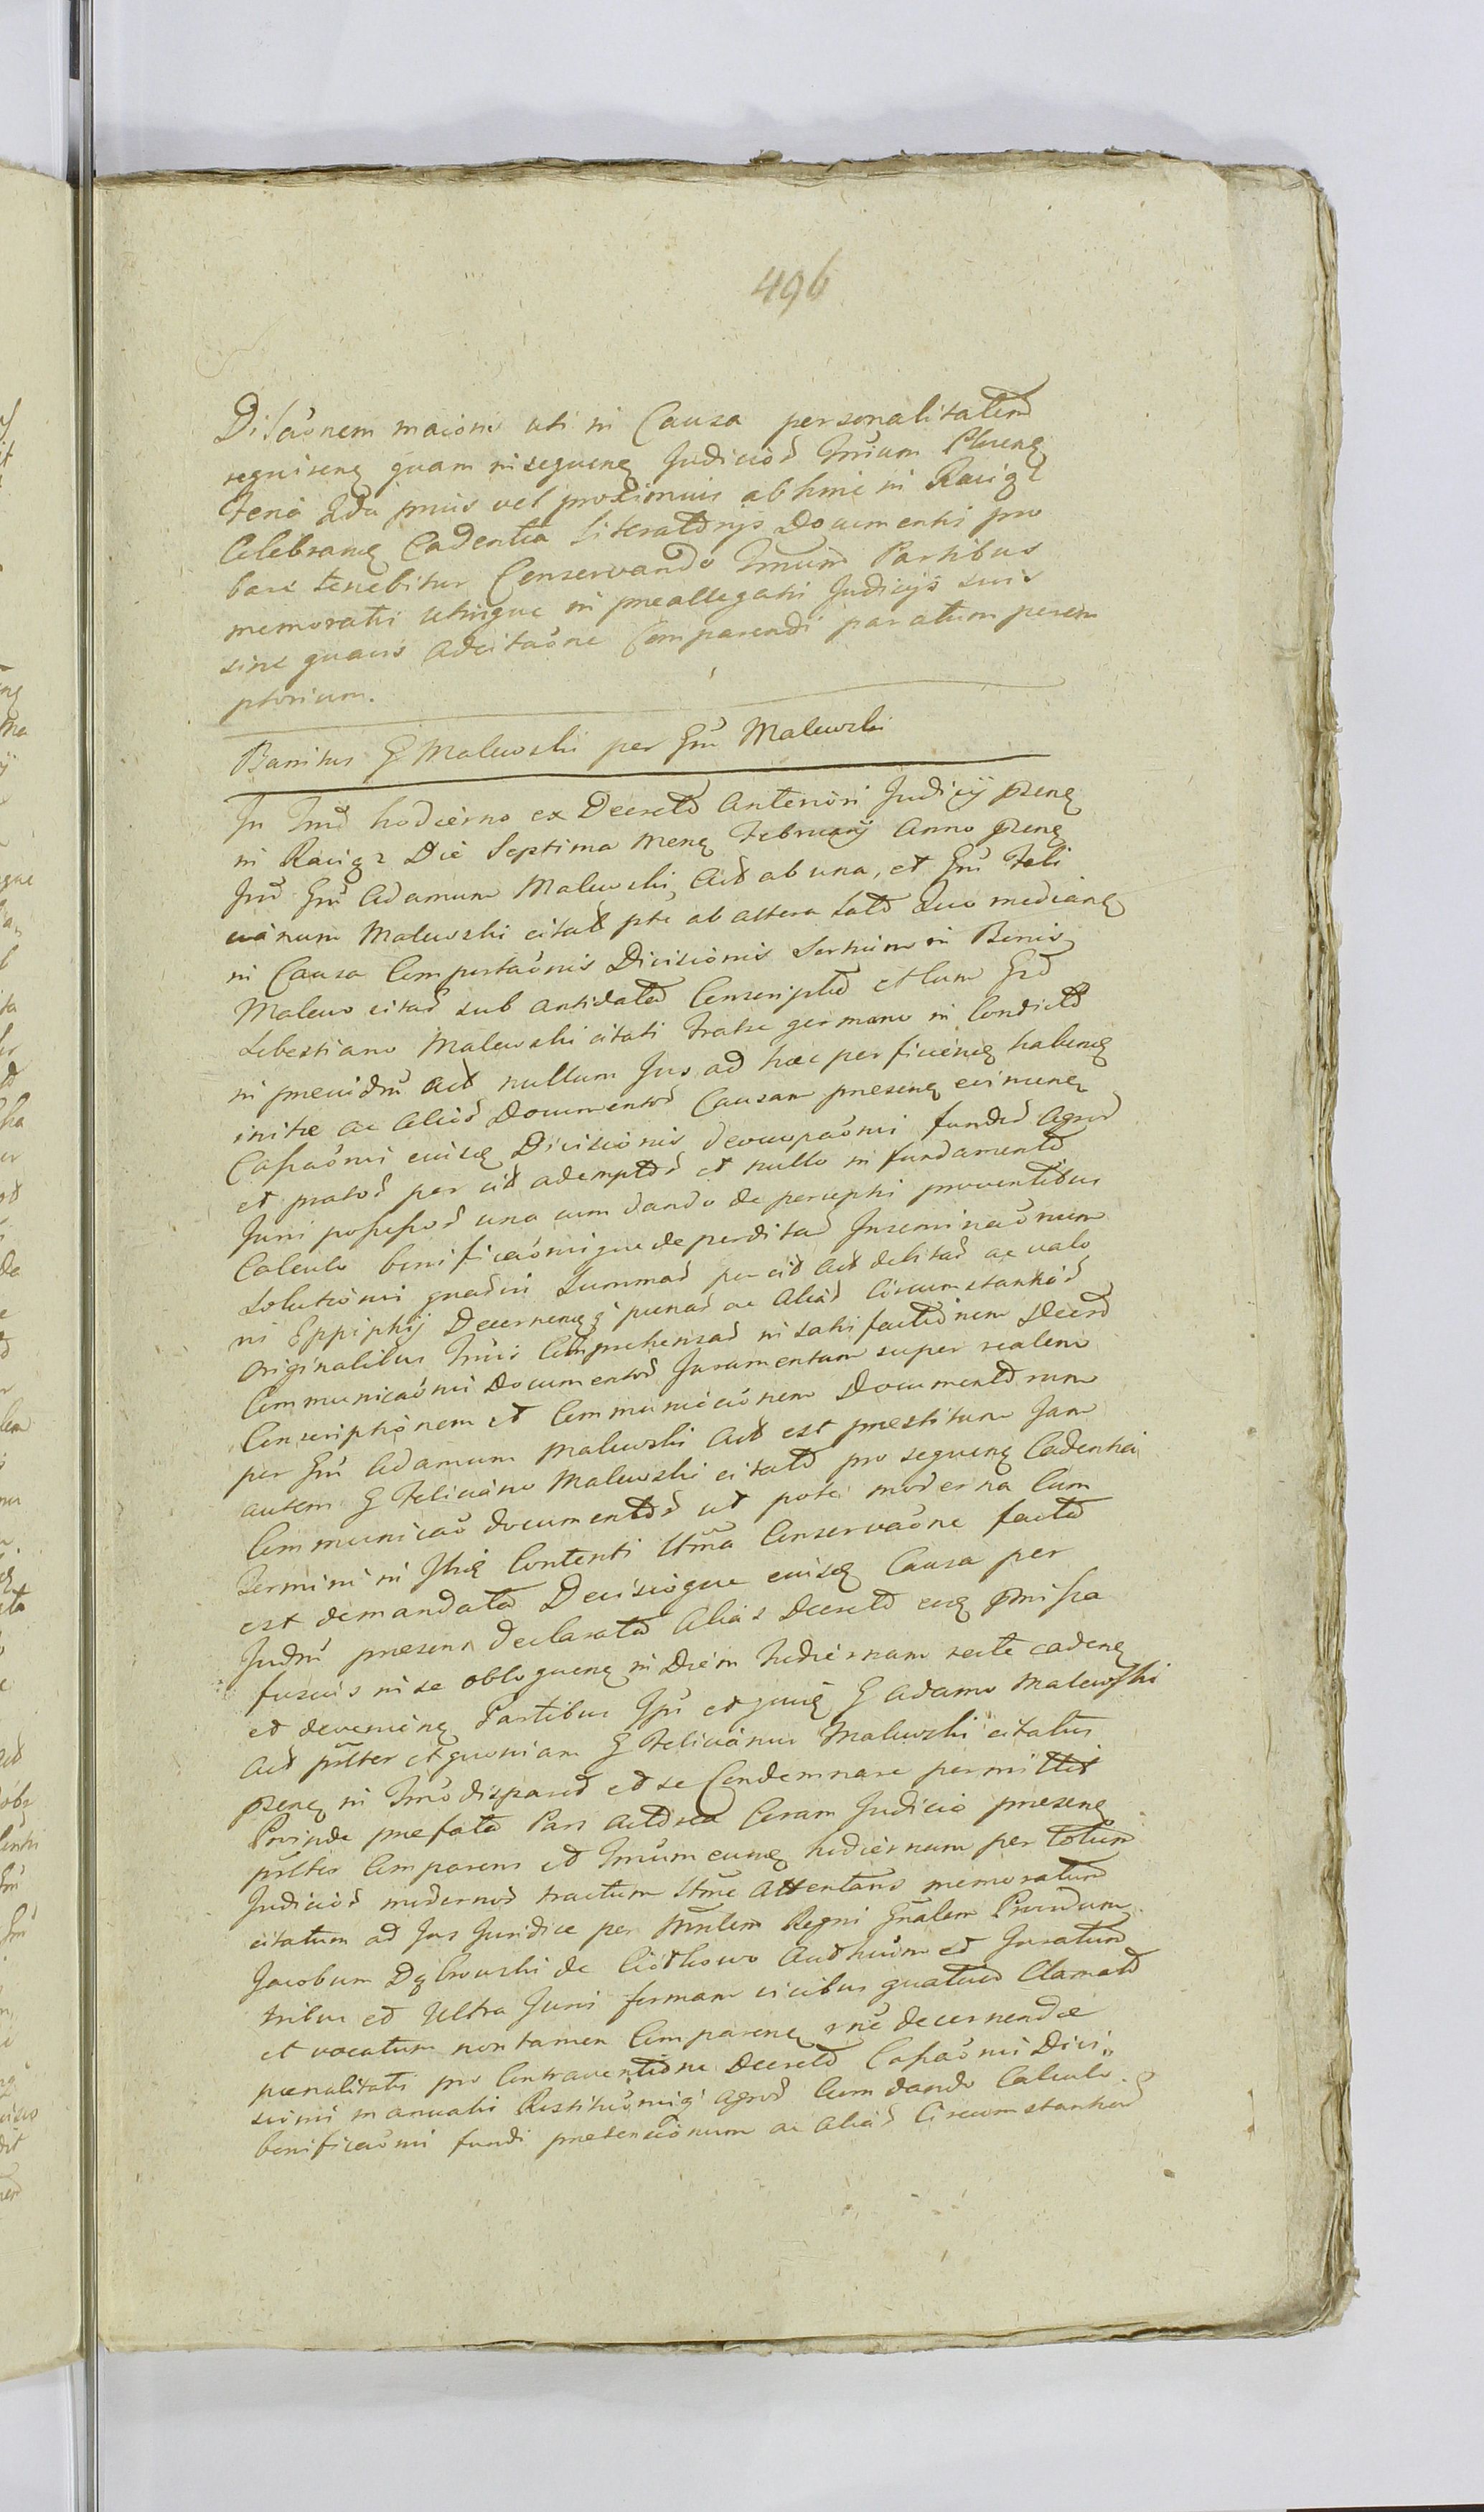 496
Dilaónem maioris uti in Causa personalitatem
requirenę quam in sequenę Judiciós Trium Pluenę
Feria 2da prius vel proximius abhinc in Raciąż
Celebranę Cadentia Literatorijs Documentis pro
bare tenebitur Conservando Tmum Partibus
memoratis utrique in preallegatis Judicijs suis
sine quavis Adcitaóne Comparendi paratum perem
ptorium.
Banitus G Malewski per Gm Malewski
In Tmo hodierno ex Decreto Anteriori Judicij psenę
in Raciąż Die Septima Menę February Anno psenę
Gm Adamum Malewski Act ab una, et Gm Feli
cianum Malewski citat pte ab altera Lato Quo medianę
in Causa Comportaónis Divisionis Sortium in Bonis
Malewo citat sub antidata Conscripto et Cum Gd
Sebestiano Malewski citati Fratre germano in Condicto
in previdm Act nullum Jus ad hoc perficienę habenę
initæ ac Aliós Documentos Causam presenę
Caśaónis eiusę Divisionis deoccupaónis fundos Agros
et pratos per cit ademptos et nullo in fundamento
Juris possessos una cum dando de perceptis proventibus
Calculo bonificaónisque deperditas Inseminaónum
Solutionis quarum Summas per cit Act debitas ac valo
ni Eppiphij Decernenę penas ac Alias Circumstantias
originalibus Tmis Comprehensas in satisfactionem Decreto
Communicaónis Documentos Juramentum super realem
Conscriptionem et Communicaonem Documentorum
per Gm Adamum Malewski Act est prestitum Jam
autem G Feliciano Malewski citato pro sequenę Cadentia
Communicaó documentos ut pote moderna Cum
Termini in Contenti Conservaóne facta
est demandata Decisioque eiusę Causa per
Judm presens declarata Alias Decreto euę
fusius in se obloquenę in Diem hodiernam recte cadenę
et devenienę Partibus G Adamo Malewski
Act psltter et quoniam G Felicianus Malewski citatus
psenę in Tmo disparet et se Condemnare permittit
Proinde prefata Pars Actorea Coram Judicio presenę
psltter Comparens et Tmum eunę hodiernum per totum
Judiciós modernos tractum Attentans memoratum
citatum ad Jus Juridice per Regni Gnalem Providum
Jacobum Dąbrowski de Ciótkowo Authum et Juratum
tribus et Ultra Juris formam vicibus quatuor Clamato
et vocatum non tamen Comparenę decernendæ
pænalitatis pro Contraventione Decreto Caśaónis Divi„
sionis manualis Restituónisq agros Cum dando Calculo
bonificaónis fundi pretensionum ac Aliás Circumstantias